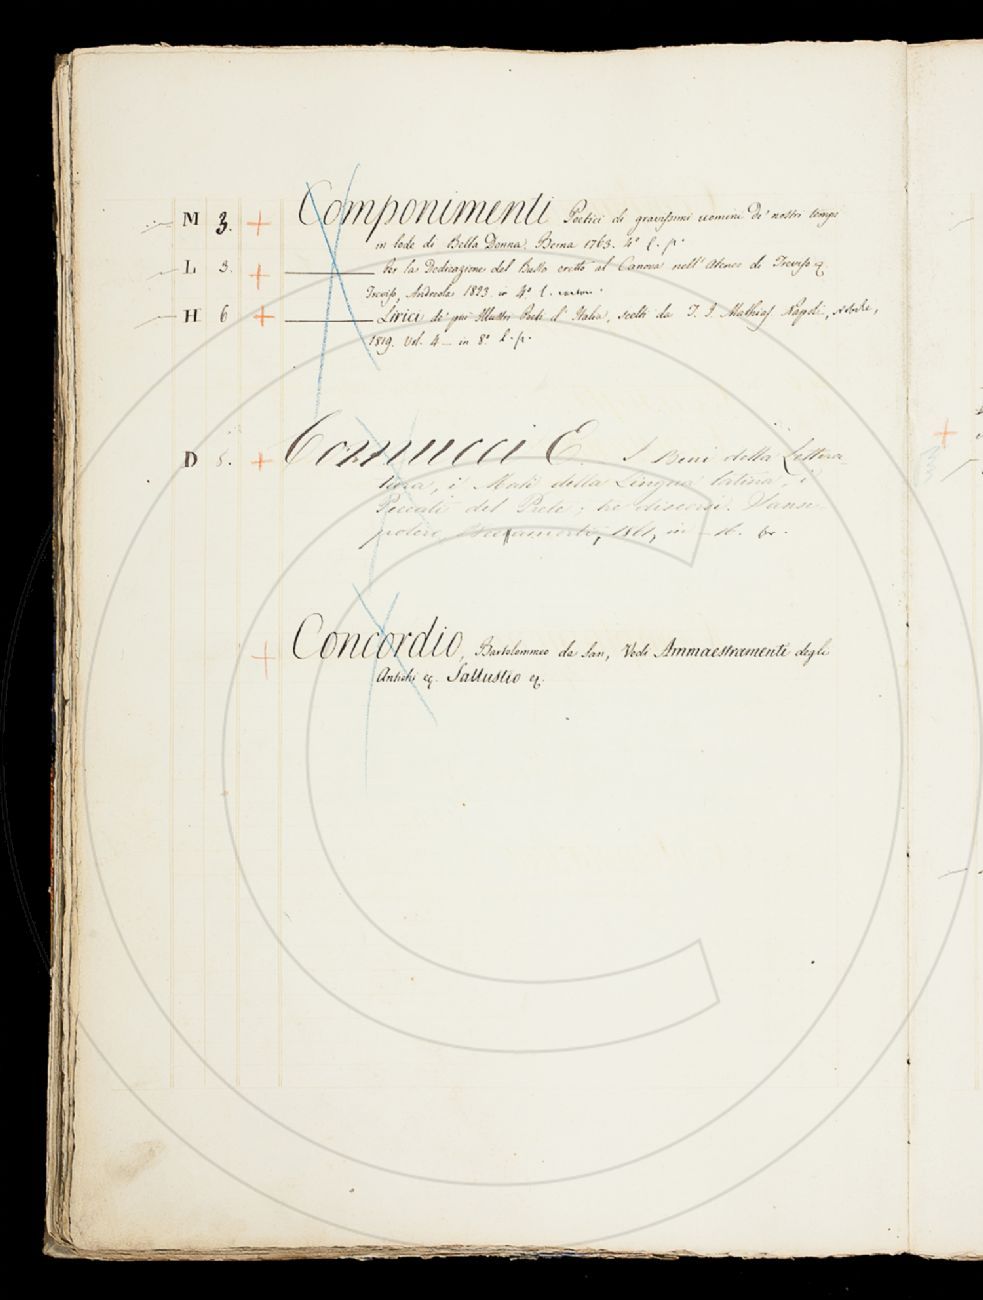 M 3. + Componimenti Poetici di gravissimi uomini de' nostri tempi
in lode di Bella Donna. 1763. 4° l. p.
L 3. + ——— Per la Dedicazione del Busto eretto al Canova nell' Ateneo di Treviso &.
Treviso, Andreola 1823. in 4° l.
H 6 + ——— Lirici de' più Illustri Poeti d' Italia, scelti da T. J. Mathias Napoli,
1819. Vol. 4 — in 8° l. p.
D 5. + Comucci E. I Beni della Lettera-
tura, i Mali della Lingua latina, i
Peccati del Prete; tre discorsi. Sanse-
polcro, in br.
+ Concordio, Bartolommeo da San, Vedi Ammaestramenti degli
Antichi &. Sallustio &.